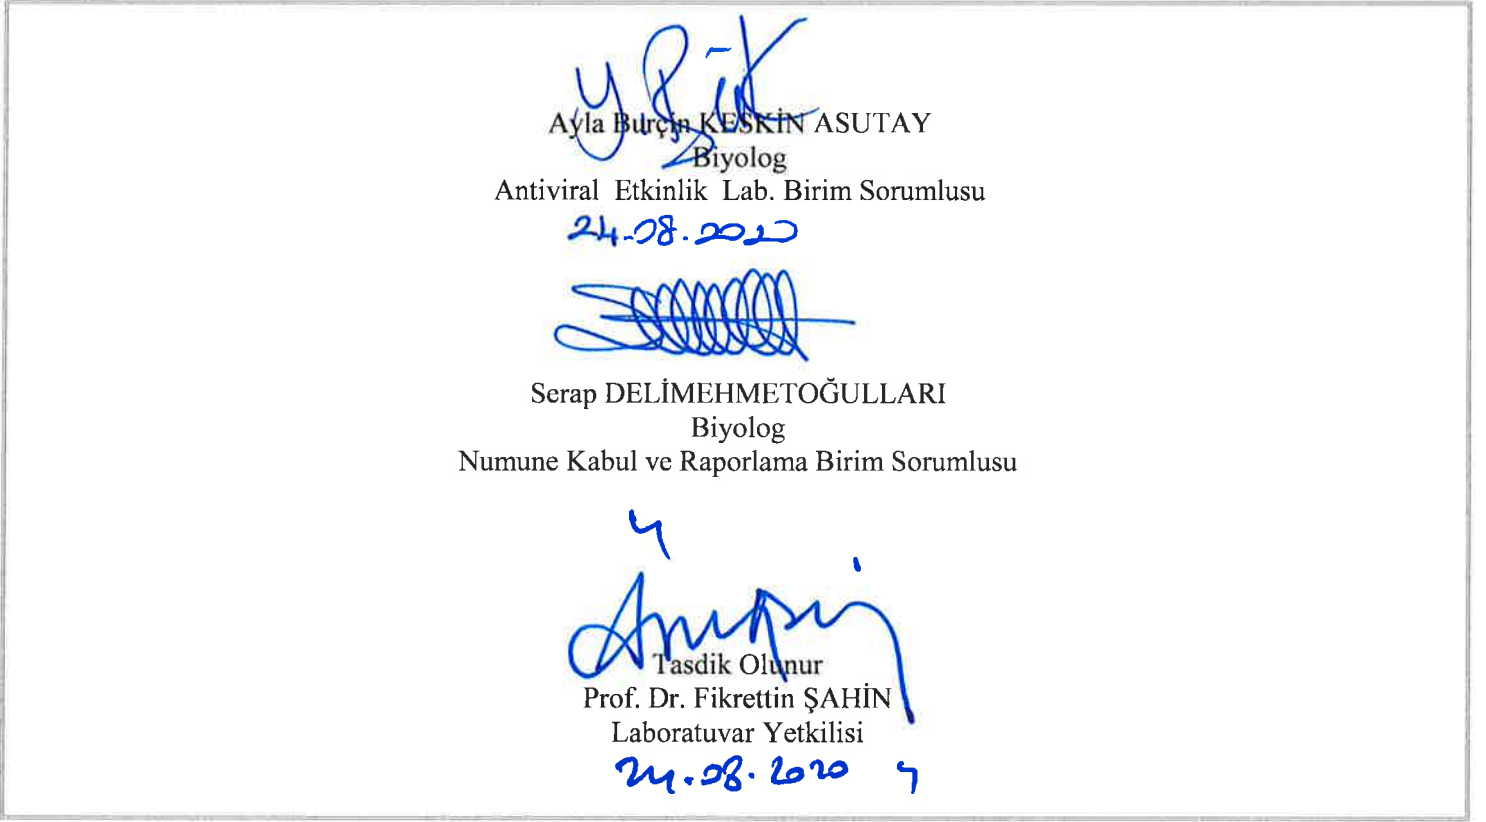 Ayla Burçin KESKİN ASUTAY
Biyolog
Antiviral Etkinlik Lab. Birim Sorumlusu
24.08.2020
Serap DELİMEHMETOĞULLARI
Biyolog
Numune Kabul ve Raporlama Birim Sorumlusu
Tasdik Olunur
Prof. Dr. Fikrettin ŞAHİN
Laboratuvar Yetkilisi
24.08.2020